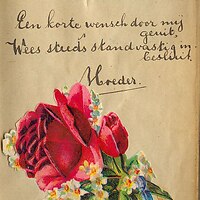 Een korte wensch door my
geuit,
Wees steeds standvastig in
besluit.
Moeder.